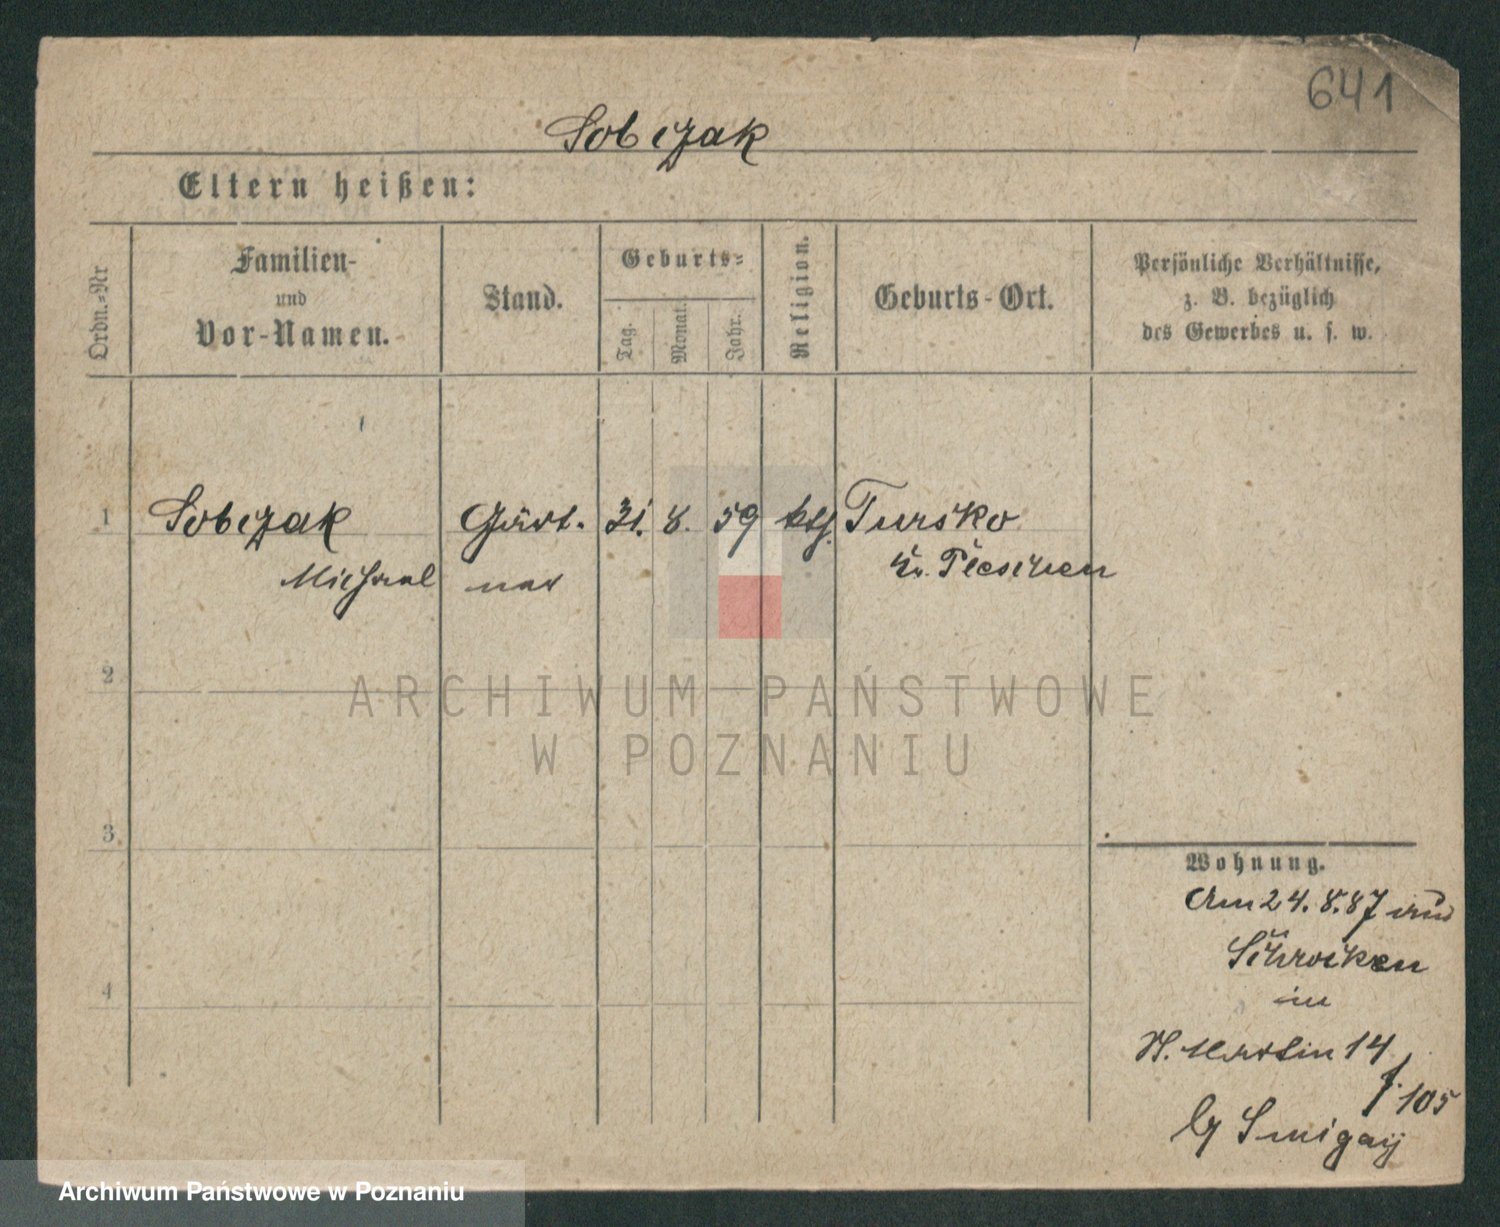 641
Sobczak
Eltern heißen:
Ordn.=Nr
Familien-
und
Vor-Namen.
Stand.
Geburts=
Tag.
Monat.
Jahr.
Religion.
Geburts-Ort.
Persönliche Verhältnisse,
z. B. bezüglich
des Gewerbes u. s. w.
1 Sobczak Gärt- 31. 8. 59 kth. Tursko
Michael ner Kr. Pleschen
2
ARCHIWUM PAŃSTWOWE
W POZNANIU
3
Wohnung.
Am 24. 8. 87 aus
Schrocken
4
in
St. Martin 14
105
by Smigaÿ
Archiwum Państwowe w Poznaniu